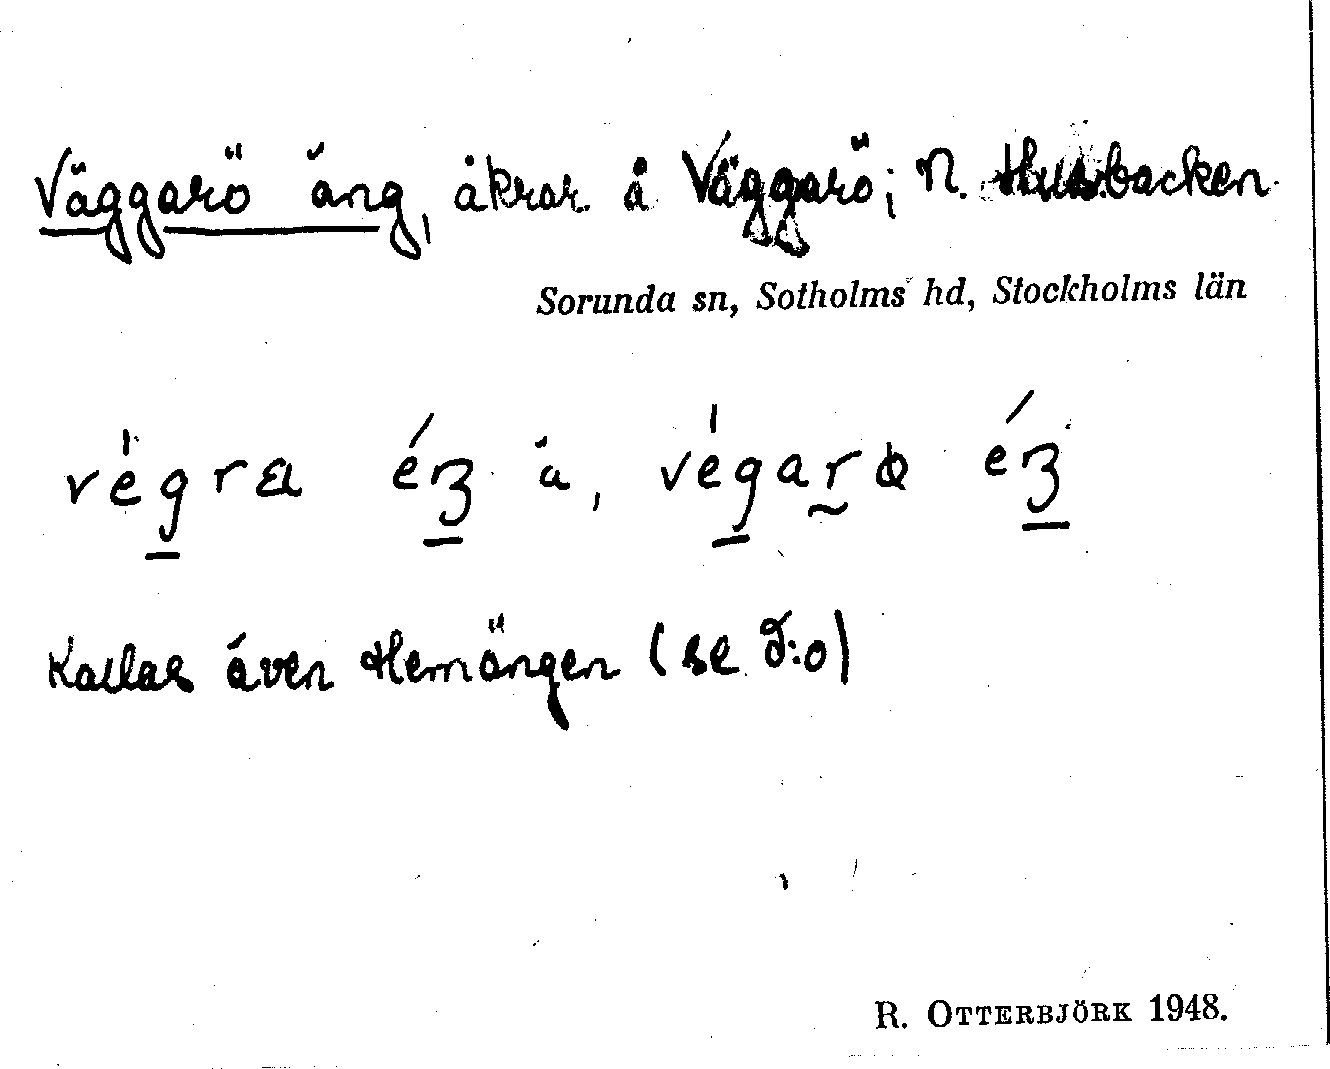 Väggarö äng, åkrar å Väggarö; N. Husbacken
Sorunda sn, Sotholms hd, Stockholms län
Kallas även Hemängen (se d:o)
R. OTTERBJÖRK 1948.